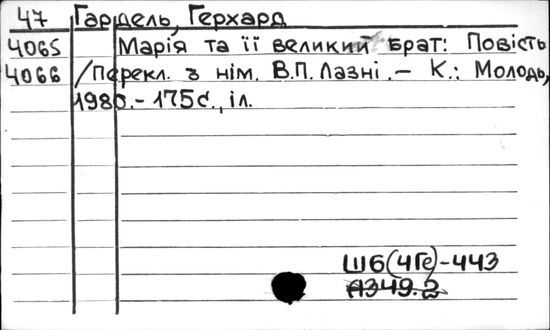 47 Гардель, Герхард
4065 Марія та її великий брат: Повість
4066 /Перекл. з нім. В.П. Лазні. – К.: Молодь,
1980. – 175с., іл.
Ш6(4Ге)-443
А349.2